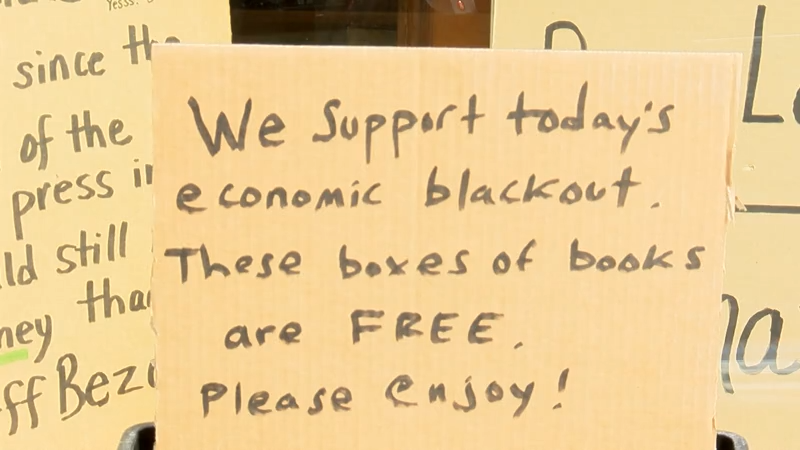 Yesss.
since the
of the
press in
ld still
ney tha
ff Bez
We Support today's
economic blackout.
These boxes of books
are FREE.
Please enjoy!
L